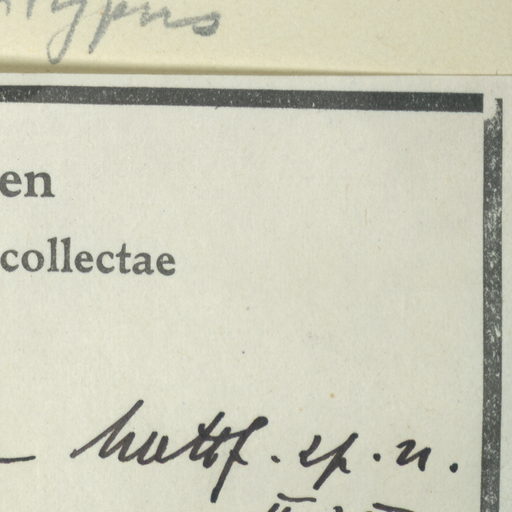 typus
en
collectae
Mattf. sp. n.